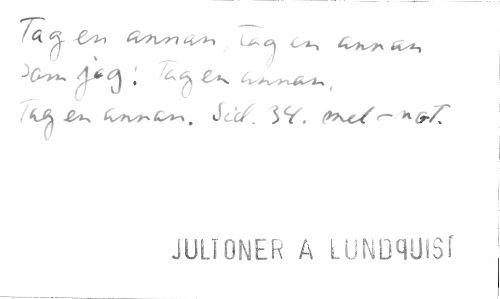 Tag en annan, tag en annan
som jag! Tag en annan,
Tag en annan. Sid. 34. mel-not.
JULTONER A LUNDQUIST